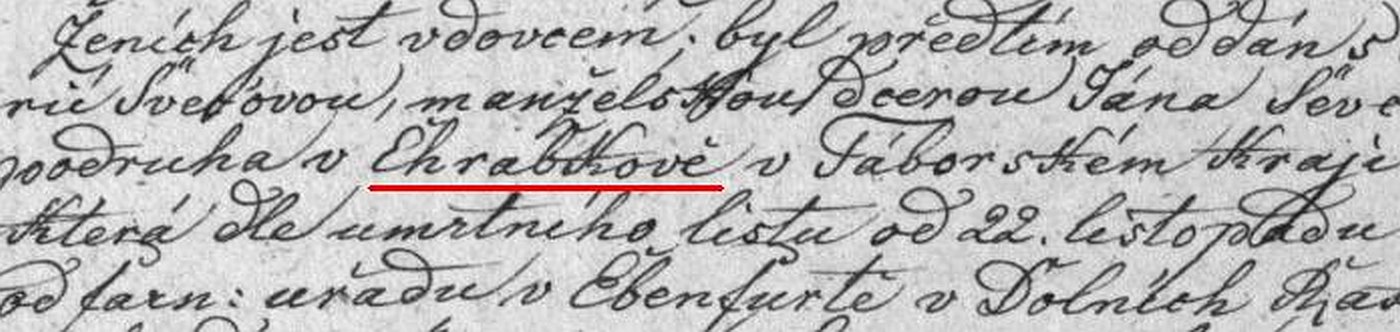 Ženich jest vdovcem; byl předtím oddán s
rií Švecovou, manželskou dcerou Jána Šve
podruha v Ehrabkově v Táborském Kraji
Která dle umrtního listu od 22. listopadu
od farn: uřadu v Ebenfurtě v Dolních Ra